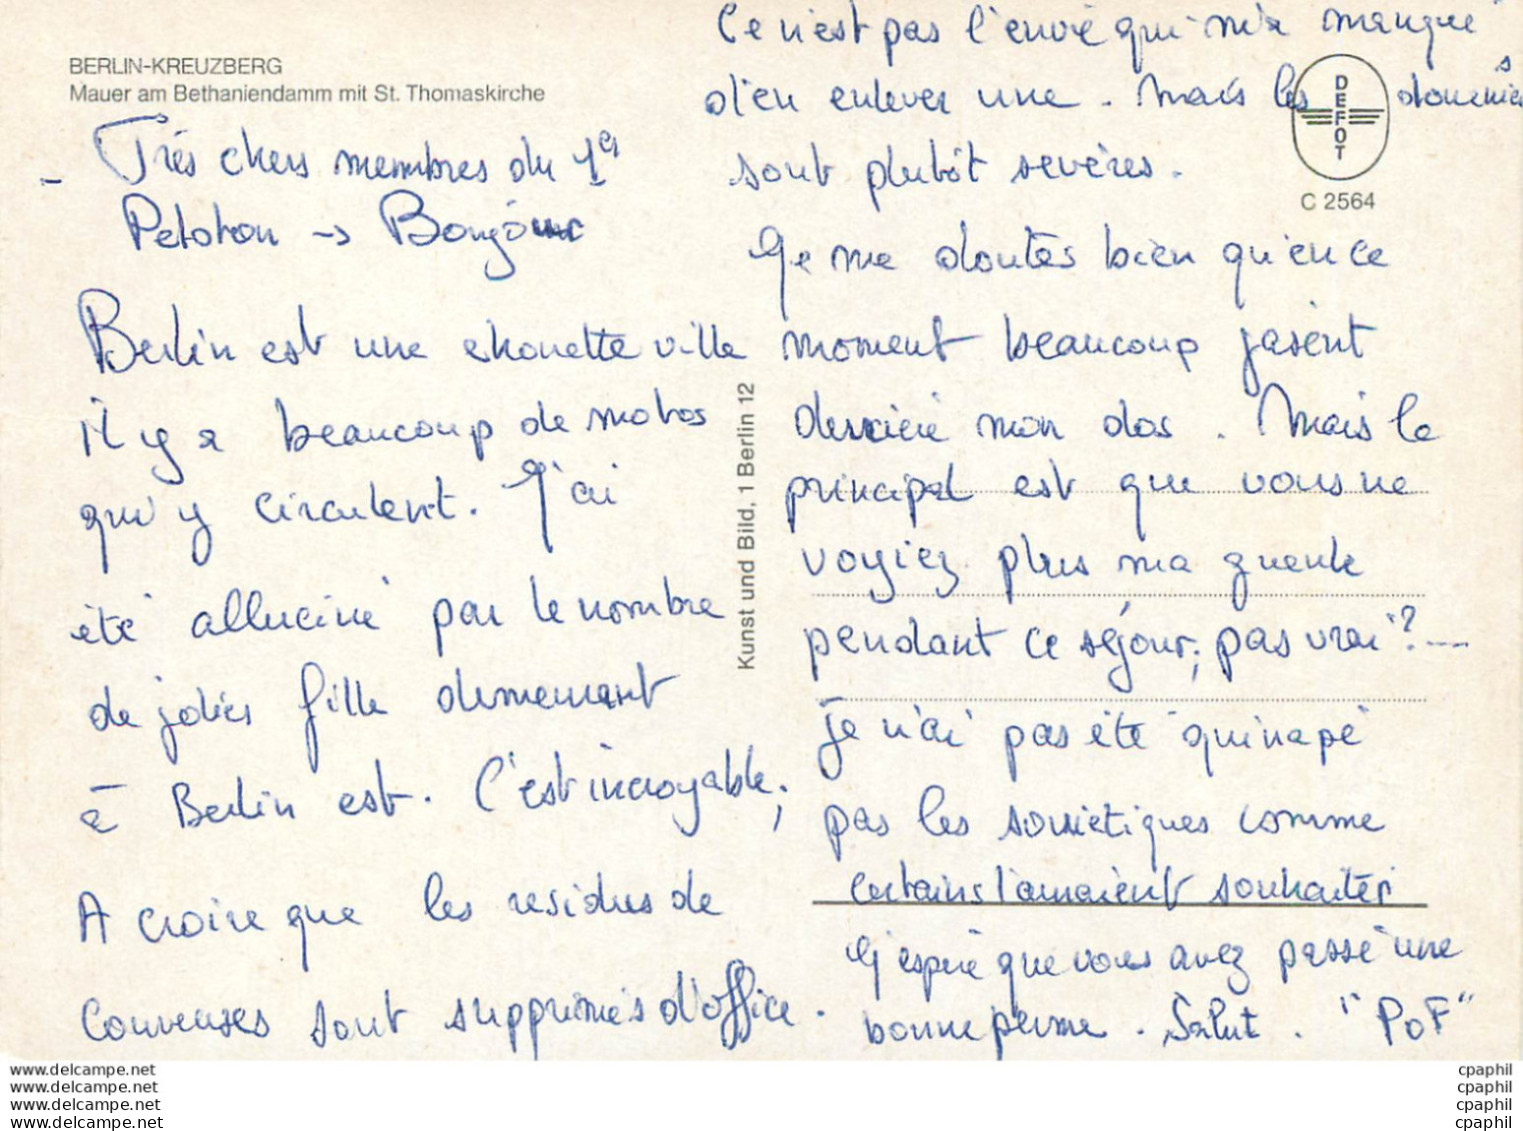 BERLIN-KREUZBERG
Mauer am Bethaniendamm mit St. Thomaskirche
- Très chers membres du 1er
Peloton → Bonjour
Berlin est une chouette ville
il y a beaucoup de motos
qui y circulent. J'ai
été alluciné par le nombre
de jolies fille demeurant
à Berlin est. C'est incroyable;
A croire que les résidus de
couveuses sont supprimés d'office.
Kunst und Bild, 1 Berlin 12
Ce n'est pas l'envie qui m'a manqué
d'en enlever une. Mais les douaniers
sont plutôt sevères.
Je me doutes bien qu'en ce
moment beaucoup jasent
derrière mon dos. Mais le
principal est que vous ne
voyiez plus ma gueule
pendant ce séjour; pas vrai?...
je n'ai pas été quinapé
pas les soviétiques comme
certains l'auraient souhaités
J'espère que vous avez passé une
bonne perme. Salut. "PoF"
DEFOT
C 2564
www.delcampe.net
www.delcampe.net
www.delcampe.net
www.delcampe.net
cpaphil
cpaphil
cpaphil
cpaphil